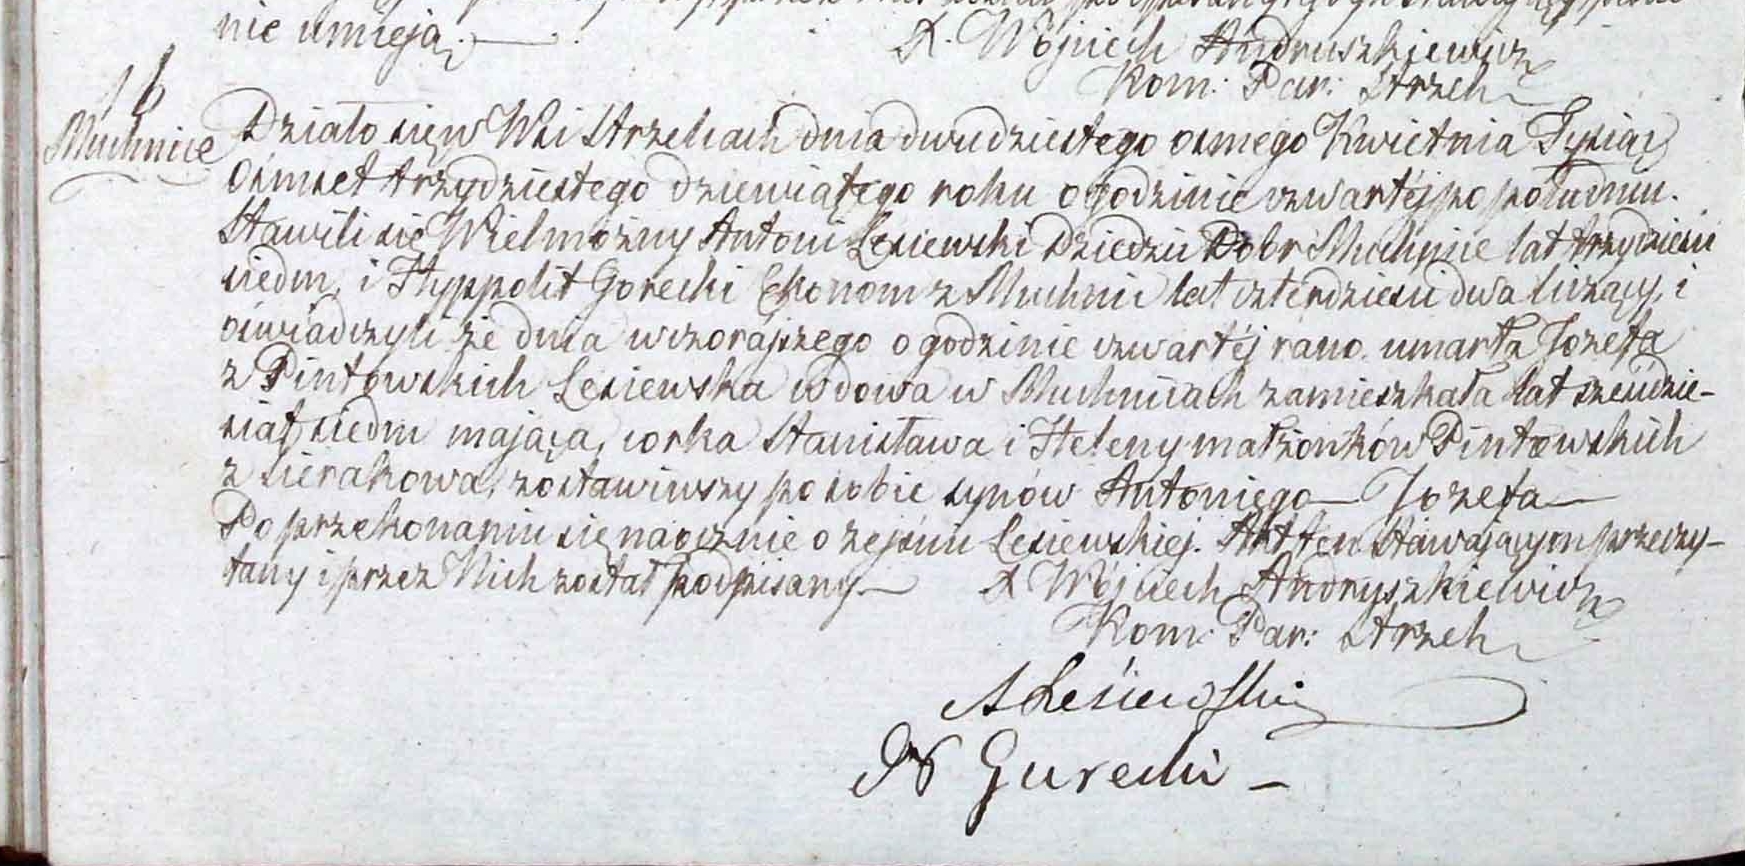 nie umieją.
X. Wojciech Andruszkiewicz
Kom: Par: Strzel:
16
Muchnice
Działo się w Wsi Strzelcach dnia dwudziestego osmego Kwietnia Tysiąc
Osmset trzydziestego dziewiątego roku o godzinie czwartéj po południu.
Stawili się Wielmożny Antoni Lesiewski Dziedzic Dobr Muchnice lat trzydzieści
siedm, i Hyppolit Gorecki Ekonom z Muchnic lat czterdzieści dwa liczący, i
oswiadczyli że dnia wczorajszego o godzinie czwartéj rano umarła Jozefa
z Pintowskich Lesiewska wdowa w Muchnicach zamieszkała lat szesdzie-
siąt siedm mająca, corka Stanisława i Heleny małżonków Pintowskich
z Sierakowa, zostawiwszy po sobie synów Antoniego Jozefa
Po przekonaniu się naocznie o zejściu Lesiewskiej. Akt ten stawającym przeczy-
tany i przez Nich został podpisany
X Wojciech Andruszkiewicz
Kom: Par: Strzel:
A Lesiewski
Gurecki